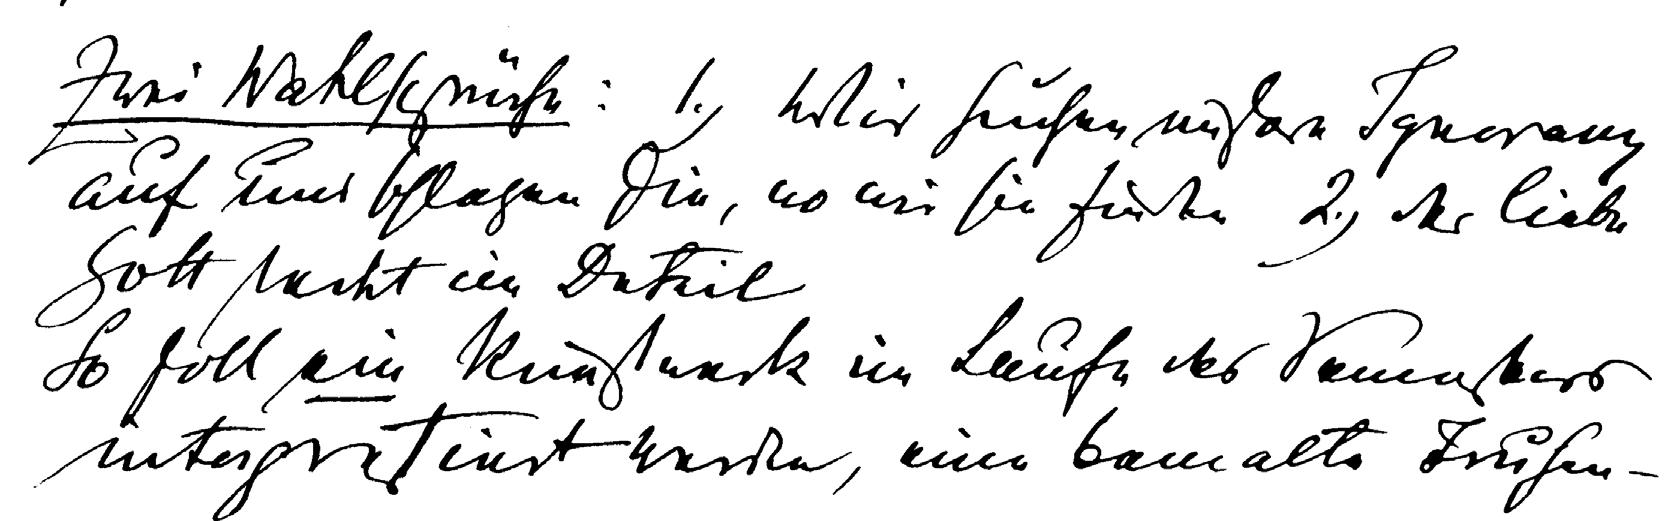 Zwei Wahlsprüche: 1.) Wir suchen unsere Ignoranz
auf und schlagen Die, wo wir sie finden 2.) der liebe
Gott steckt im Detail
So soll ein Kunstwerk im Laufe des Semesters
interpretiert werden, eine bemalte Truhen-